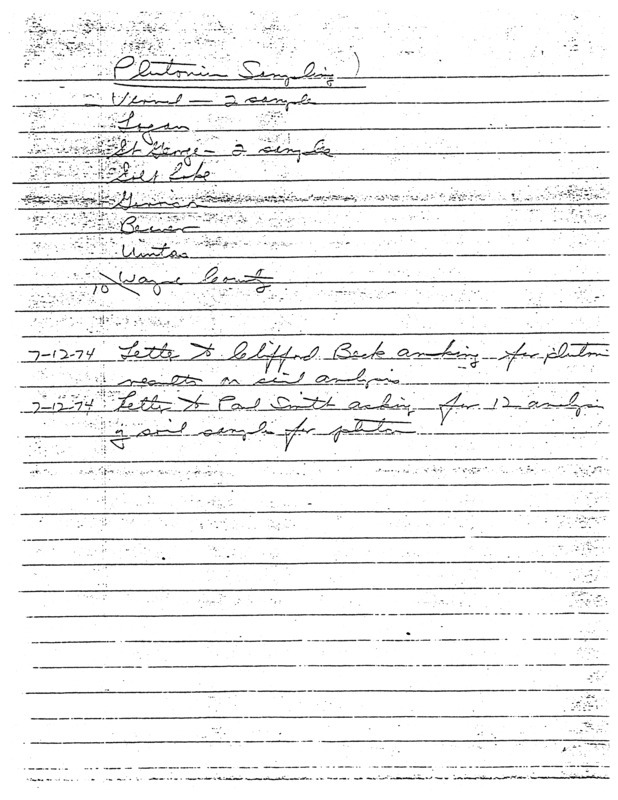 Plutonium Sampling )
Vernal - 2 sample
Logan
St George - 2 sample
Salt Lake
Beaver
Uinta
10 Wayne County
7-12-74 Letter to Clifford Beck asking for pluton
results on soil analysis
7-12-74 Letter to Paul Smith asking for 12 analysis
of soil sample for pluton